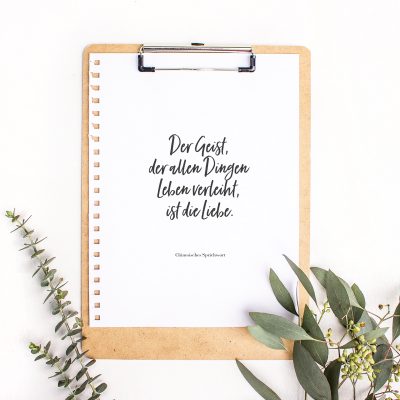 Der Geist,
der allen Dingen
Leben verleiht,
ist die Liebe.
Chinesisches Sprichwort